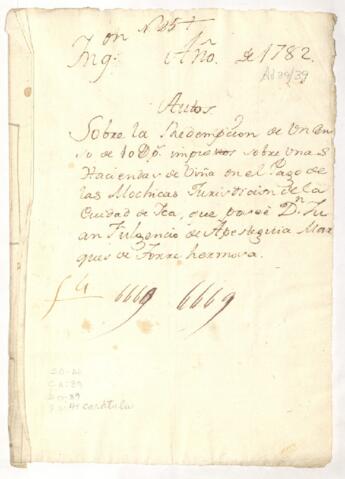 on N. 25
Ing. Año. de 1782.
Ad 39/39
Autos
Sobre la Redempcion de Un Cen
so de 10Dp. impuestos sobre Unas
Haciendas de Viña en el Pago de
las Mochicas Jurisdicion de la
Ciudad de Ica, que poseé Dn. Ju
an Fulgencio de Apesteguia Mar
ques de Torre hermosa.
6669 6669
carátula